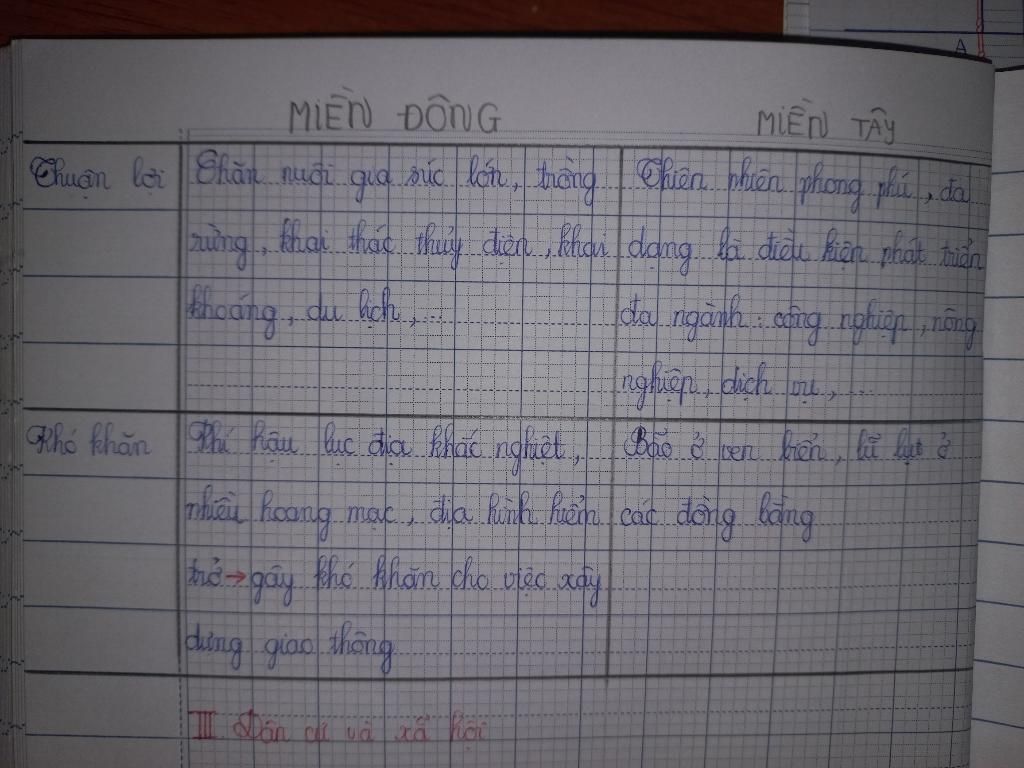 A
MIỀN ĐÔNG
MIỀN TÂY
Thuận lợi
Chăn nuôi gia súc lớn, trồng
rừng, khai thác thủy điện, khai
khoáng, du lịch,...
Thiên nhiên phong phú, đa
dạng là điều kiện phát triển
đa ngành: công nghiệp, nông
nghiệp, dịch vụ,...
Khó khăn
Khí hậu lục địa khắc nghiệt,
nhiều hoang mạc, địa hình hiểm
trở → gây khó khăn cho việc xây
dựng giao thông
Bão ở ven biển, lũ lụt ở
các đồng bằng
III Dân cư và xã hội